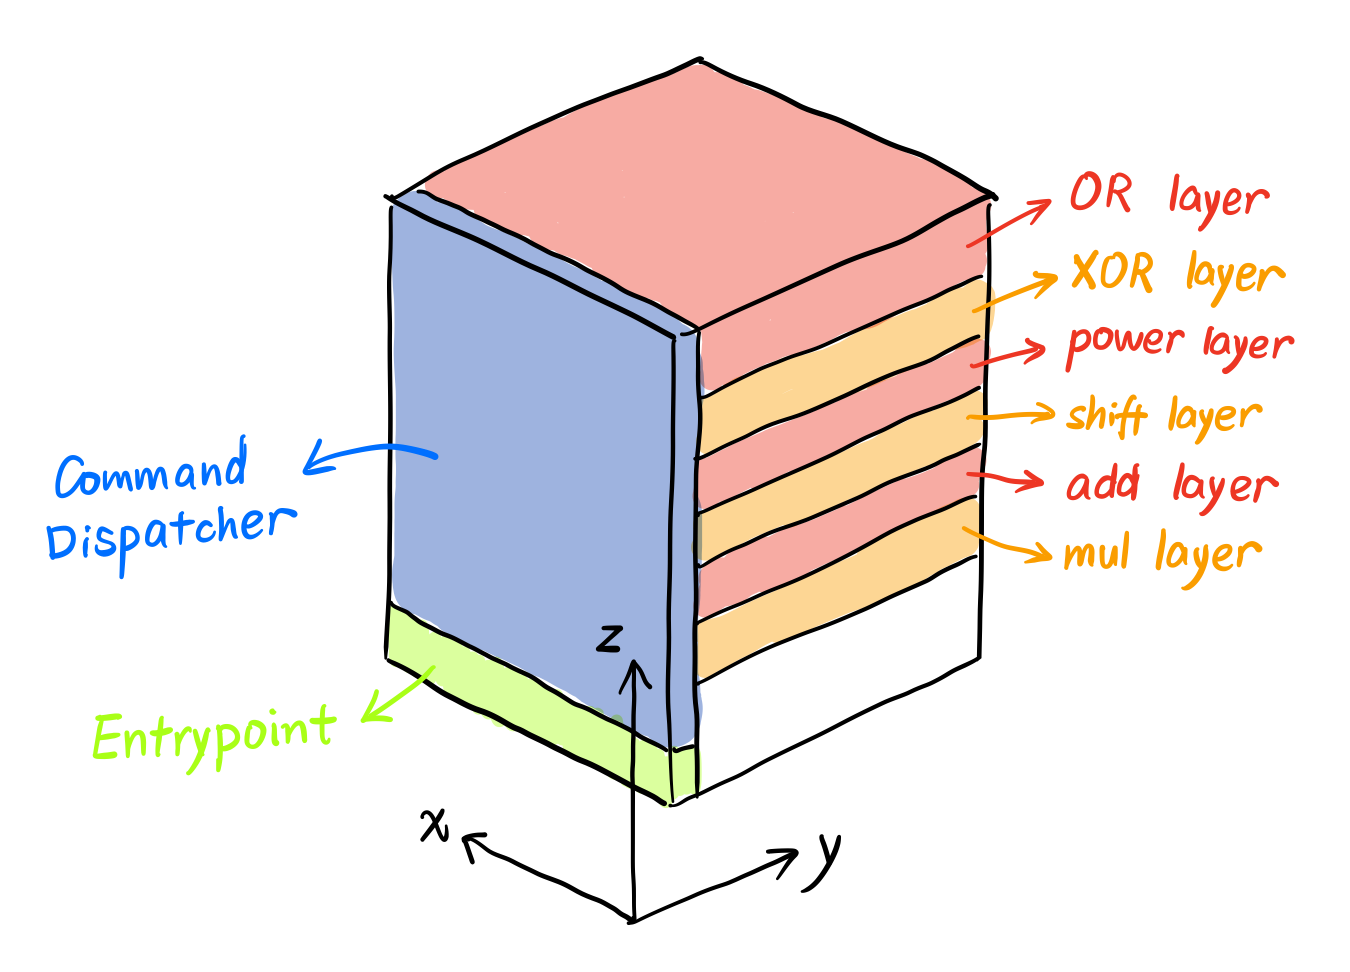 OR layer
XOR layer
power layer
shift layer
add layer
mul layer
Command
Dispatcher
Entrypoint
z
x
y